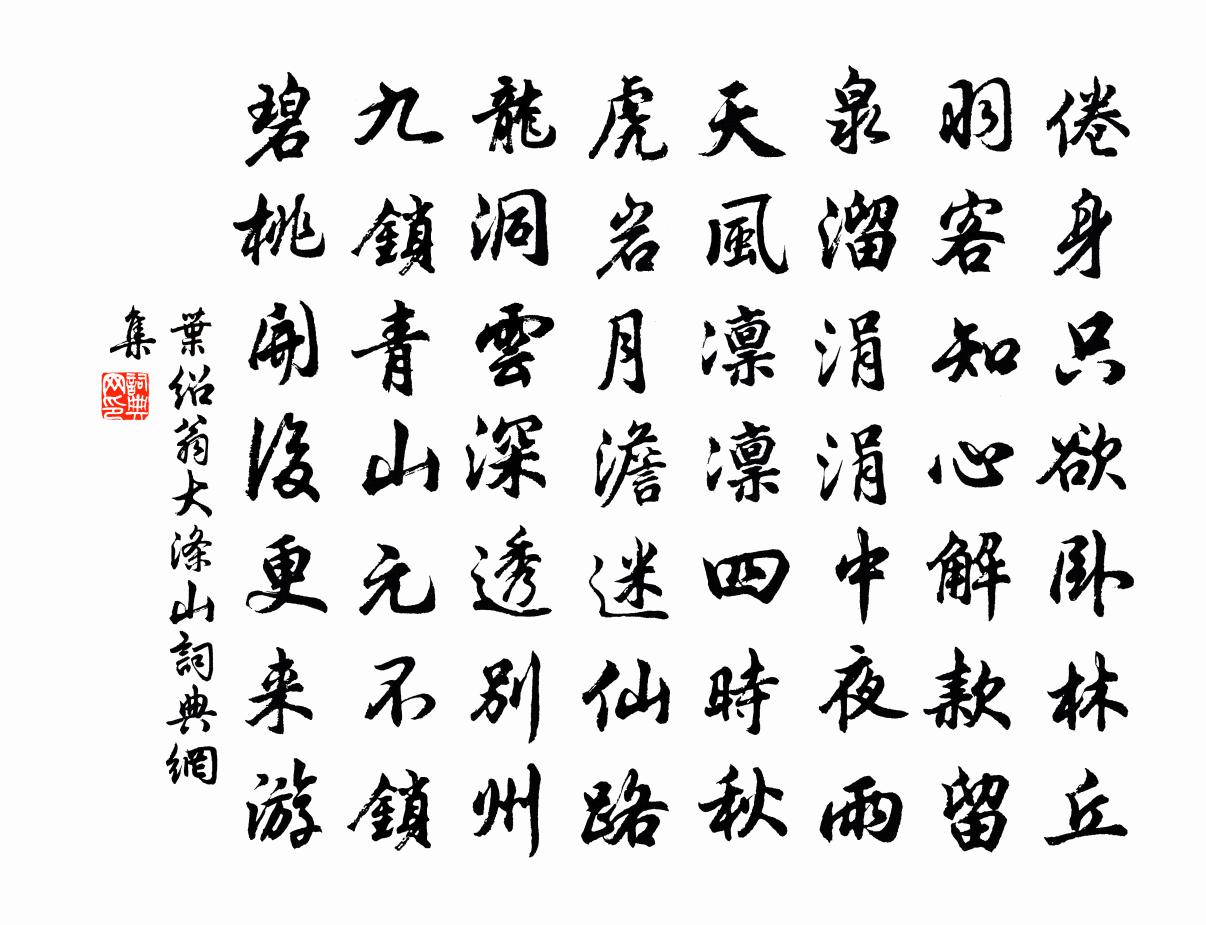 倦身只欲卧林丘
羽客知心解款留
泉溜涓涓中夜雨
天風凛凛四時秋
虎岩月澹迷仙路
龍洞雲深透別州
九鎖青山元不鎖
碧桃開後更来游
葉紹翁大滌山詞典網
集
詞典
网印